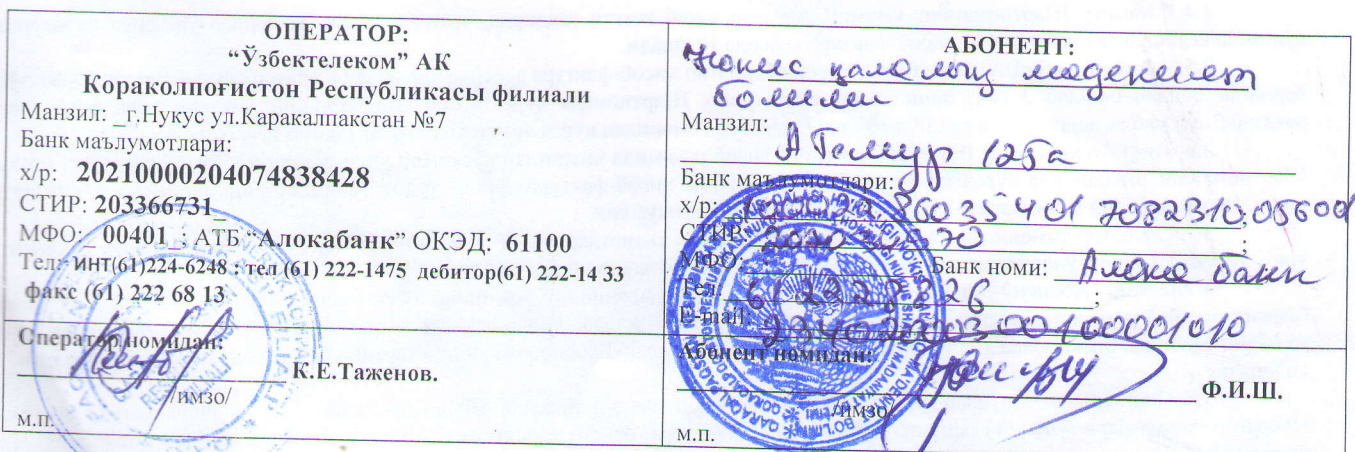 ОПЕРАТОР:
“Ўзбектелеком” АК
Кораколпоғистон Республикасы филиали
Манзил: _г.Нукус ул.Каракалпакстан №7
Банк маълумотлари:
х/р: 20210000204074838428
СТИР: 203366731_
МФО:_ 00401_; АТБ “Алокабанк” ОКЭД: 61100
Тел: ИНТ(61)224-6248 ; тел (61) 222-1475 дебитор(61) 222-14 33
факс (61) 222 68 13
Оператор номидан:
К.Е.Таженов.
/имзо/
м.п.
АБОНЕНТ:
Нөкис қаламың мәденият
бөлими
Манзил: А Темур 125а
Банк маълумотлари:
х/р: 86035401 7082310,05600
СТИР:
МФО: Банк номи: Алоқа банк
Тел:
E-mail: 23402000300100001010
Абонент номидан:
Ф.И.Ш.
/имзо/
м.п.